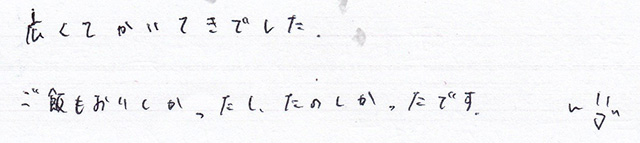 広くてかいてきでした.
ご飯もおいしかったし、たのしかったです.